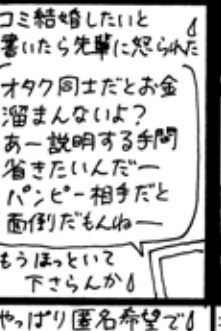 コミ結婚したいと
書いたら先輩に怒られた
オタク同士だとお金
溜まんないよ?
あー説明する手間
省きたいんだー
パンピー相手だと
面倒だもんねー
もうほっといて
下さらんか
やっぱり匿名希望で